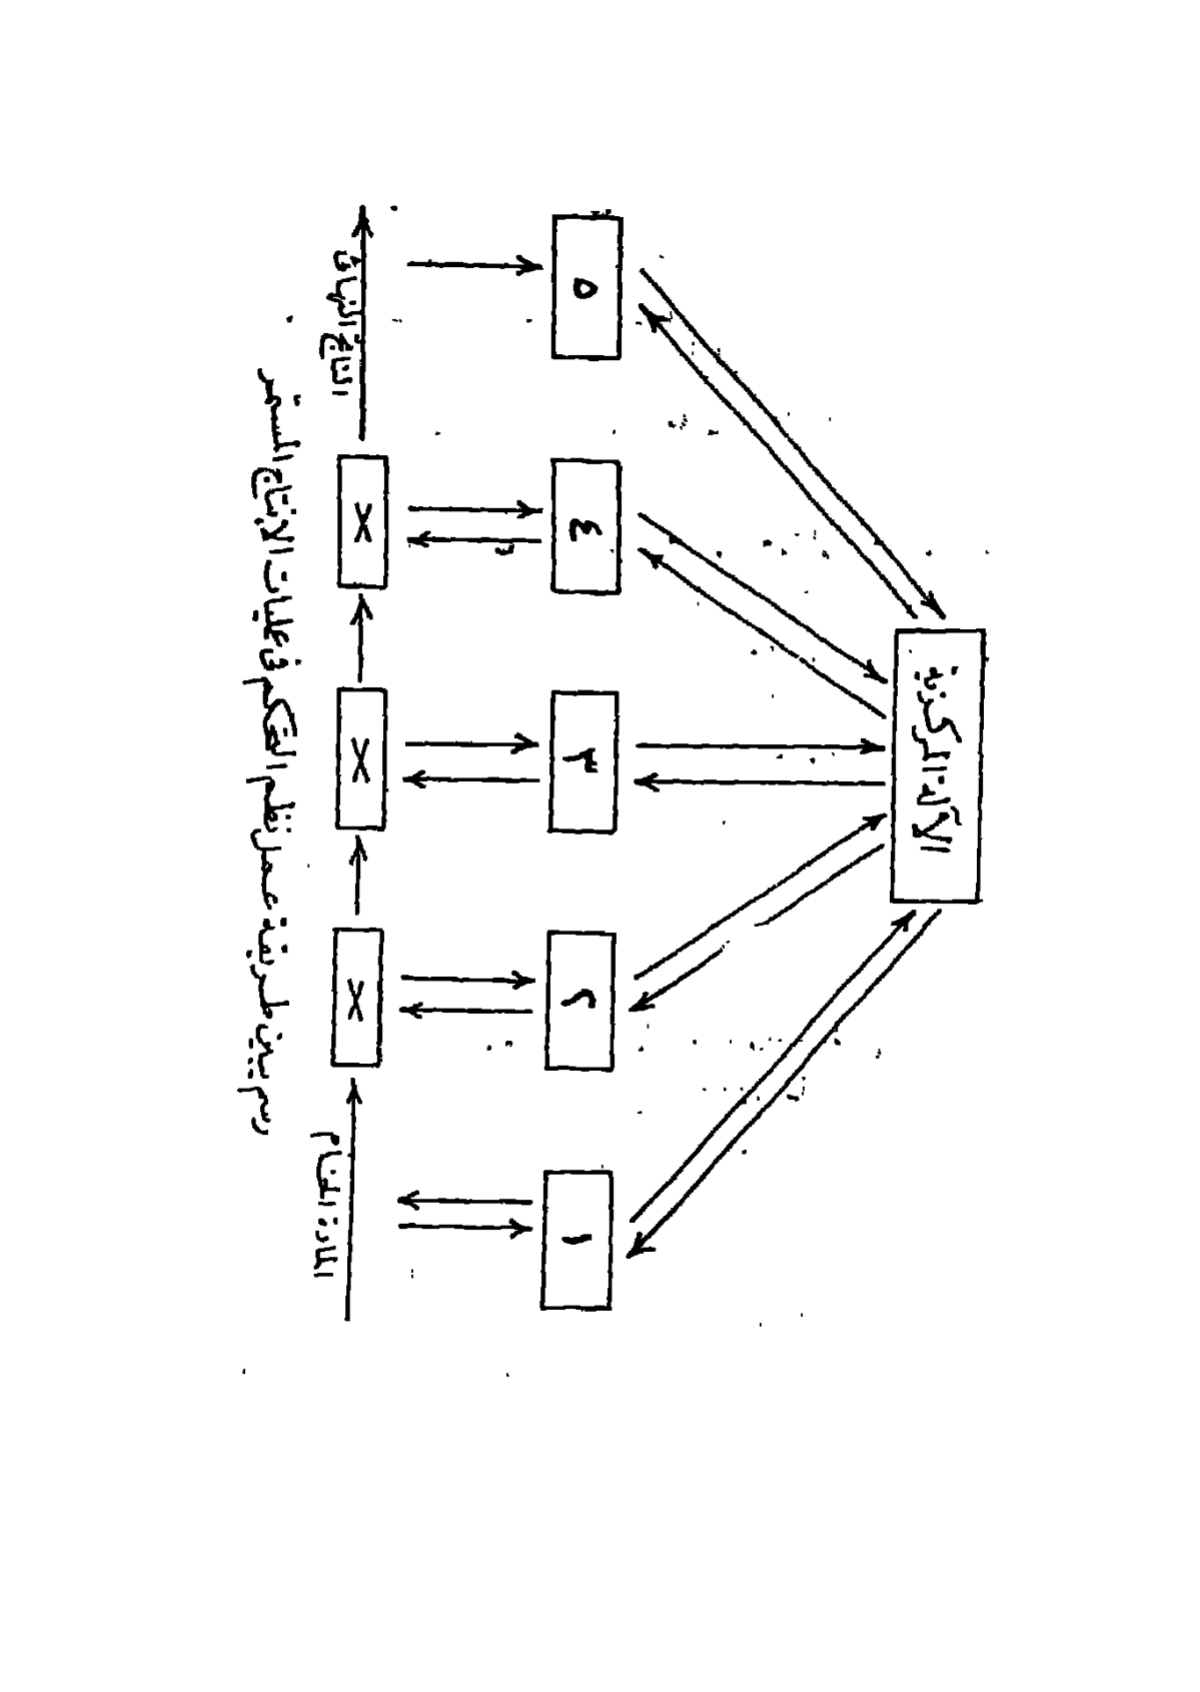 الآلة المركزية
١
٢
٣
٤
٥
X
X
X
المادة الخام
الناتج النهائى
رسم يبين طريقة عمل نظم التحكم فى عمليات الإنتاج المستمر